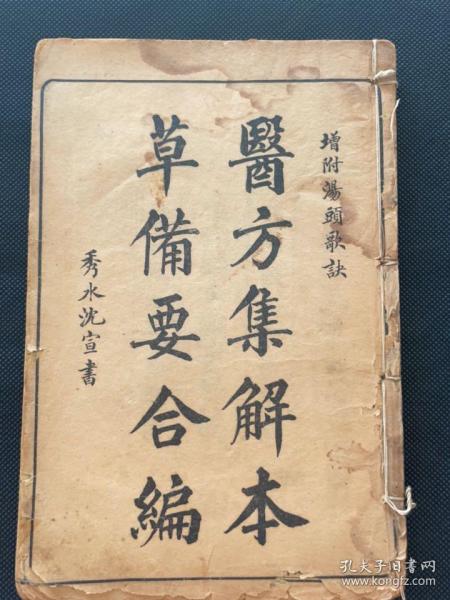 增附湯頭歌訣
醫方集解本
草備要合編
秀水沈宣書
孔夫子旧书网
www.kongfz.com